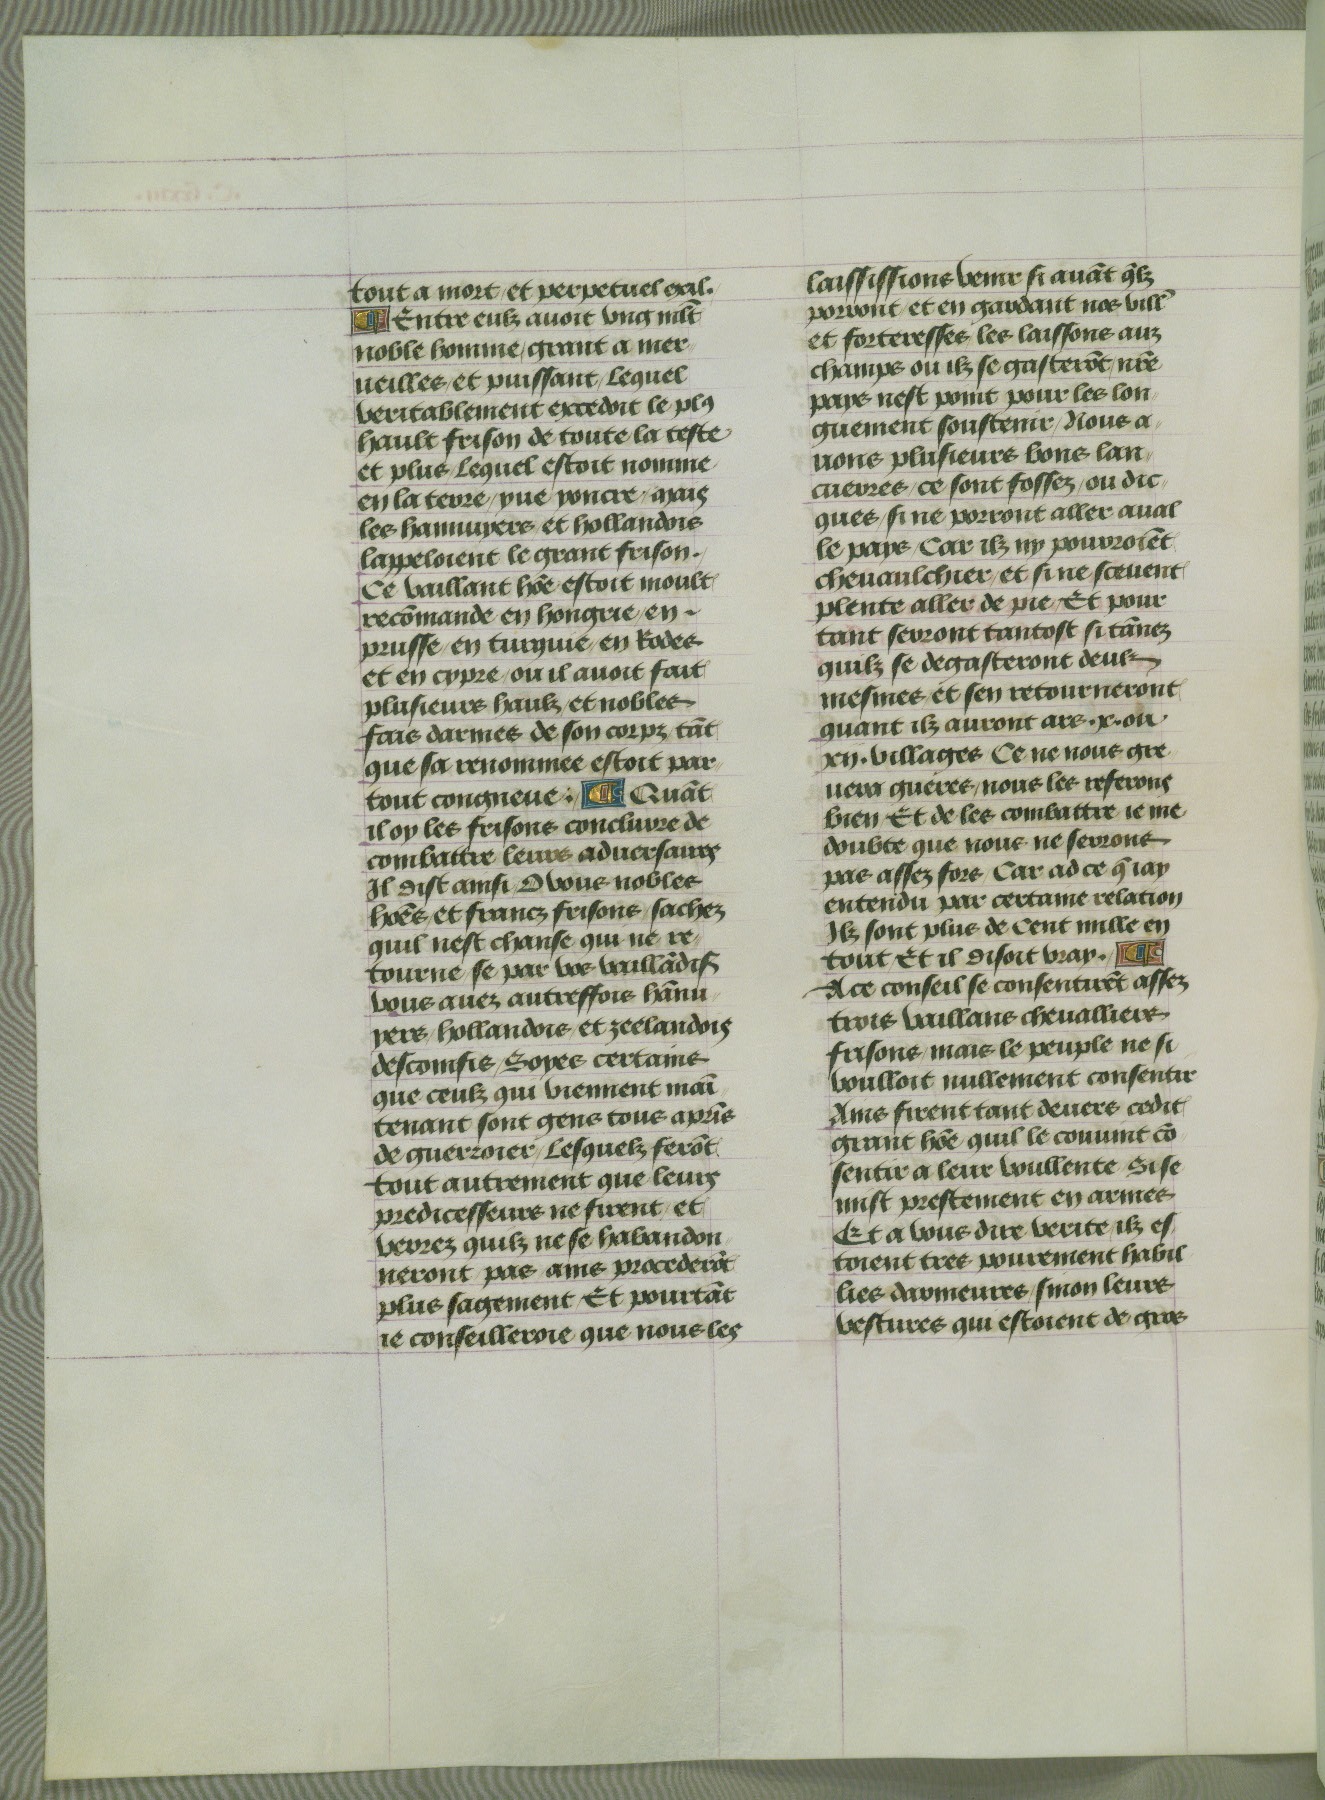 tout a mort / et perpetuel exil.
¶ Entre eulz auoit vng mlt̄
noble homme / grant a mer
ueilles / et puissant / Lequel
veritablement excedoit le plꝯ
hault frison de toute la teste
et plus / Lequel estoit nomme
en la terre / yue yoncre / mais
les hannuyers et hollandois
lappeloient le grant frison.
Ce vaillant hōe estoit moult
recōmande en hongrie / en
prusse / en turquie / en Rodes
et en cypre / ou il auoit fait
plusieurs haulz et nobles
fais darmes de son corpz / tāt
que sa renommee estoit par
tout congneue : ¶ Quāt
il oy les frisons conclurre de
combattre leurs aduersaires
Il dist ainsi / O vous nobles
hōes et francz frisons / sachez
quil nest chanse qui ne re
tourne / se par vos vaillādiß
vous auez autreffois hānu
yers / hollandois / et zeelandois
descomfis / Soyes certains
que ceulz qui viennent mai
tenant sont gens tous apris
de guerroier / Lesquelz ferōt
tout autrement que leurs
predicesseurs ne firent / et
verrez quilz ne se habandon
neront pas ains procederōt
plus sagement / Et pourtāt
ie conseilleroie que nous les
laississions venir si auāt q̄lz
porront / et en gardant nos vill'
et forteresses les laissons aux
champs ou ilz se gasterōt / nr̄e
pays nest point pour les lon
guement soustenir / Nous a
uons plusieurs bons lan
cuerres / ce sont fossez / ou dic
ques / si ne porront aller aual
le pays / Car ilz ny pourroiēt
cheuaulchier / et si ne sceuent
plente aller de pie / Et pour
tant seront tantost si tānez
quilz se degasteront deulz
mesmes / et sen retourneront
quant ilz auront ars .x. ou
xij. villages Ce ne nous gre
uera gueres / nous les referons
bien Et de les combattre ie me
doubte que nous ne serons
pas assez fors / Car ad ce q̄ iay
entendu par certaine relation
Ilz sont plus de Cent mille en
tout / Et il disoit vray. ¶
A ce conseil se consentirēt assez
trois vaillans cheualliers
frisons / mais le peuple ne si
voulloit nullement consentir
Ains firent tant deuers cedit
grant hōe quil le couuint cō
sentir a leur voullente Si se
mist prestement en armes
Et a vous dire verite / ilz es
toient tres pourement habil
lies darmeures / sinon leurs
vestures qui estoient de gros